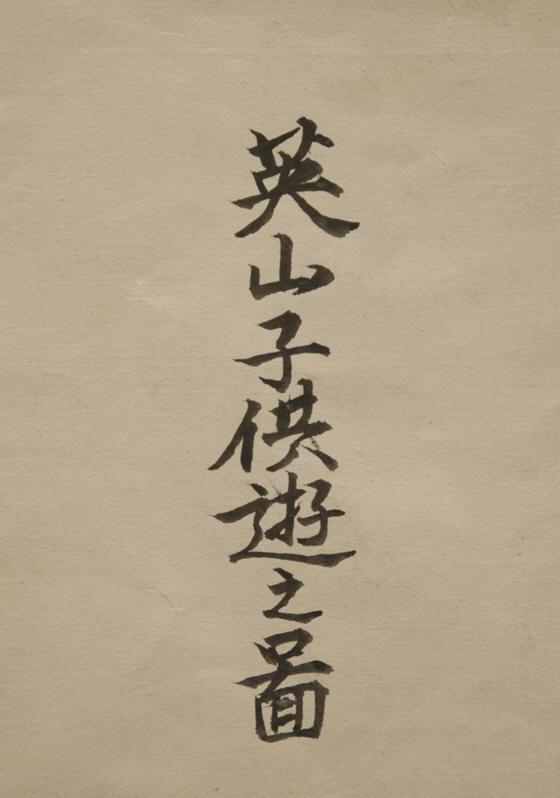 英山子供遊之啚